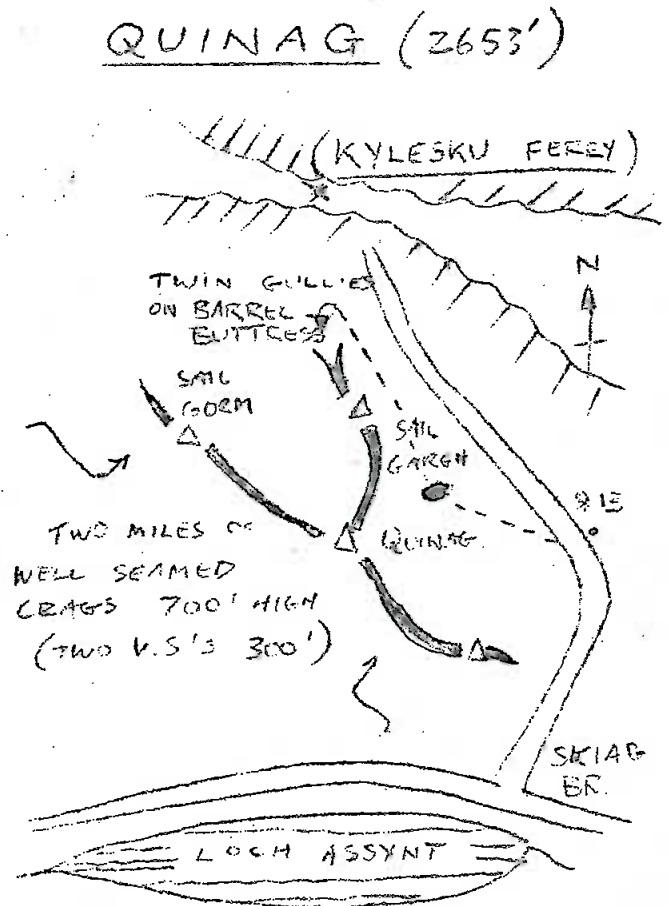 QUINAG (2653')
(KYLESKU FERRY)
N
TWIN GULLIES
ON BARREL
BUTTRESS
SAIL
GORM
SAIL
GARGH
QUINAG
TWO MILES OF
WELL SEAMED
CRAGS 700' HIGH
(TWO V.S'S 300')
SKIAG
BR.
LOCH ASSYNT